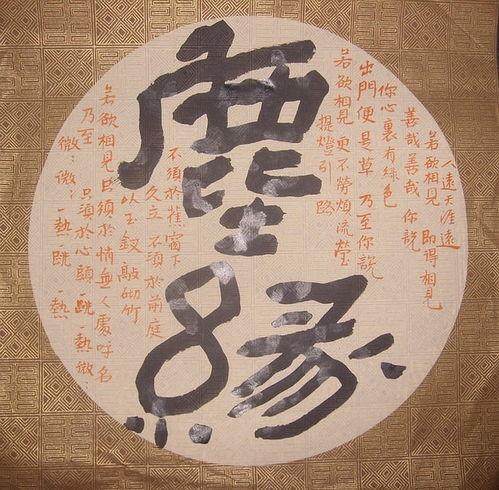 塵緣
人遠天涯遠
若欲相見 即得相見
善哉善哉 你說
你心裏有綠色
出門便是草 乃至你說
若欲相見 更不勞煩流螢
提燈引路
不須於蕉窗下
久立 不須於前庭
以玉釵敲砌竹
若欲相見 只須於悄無人處呼名
乃至 只須於心頭一跳一熱微:
微:微:一熱一跳 一熱